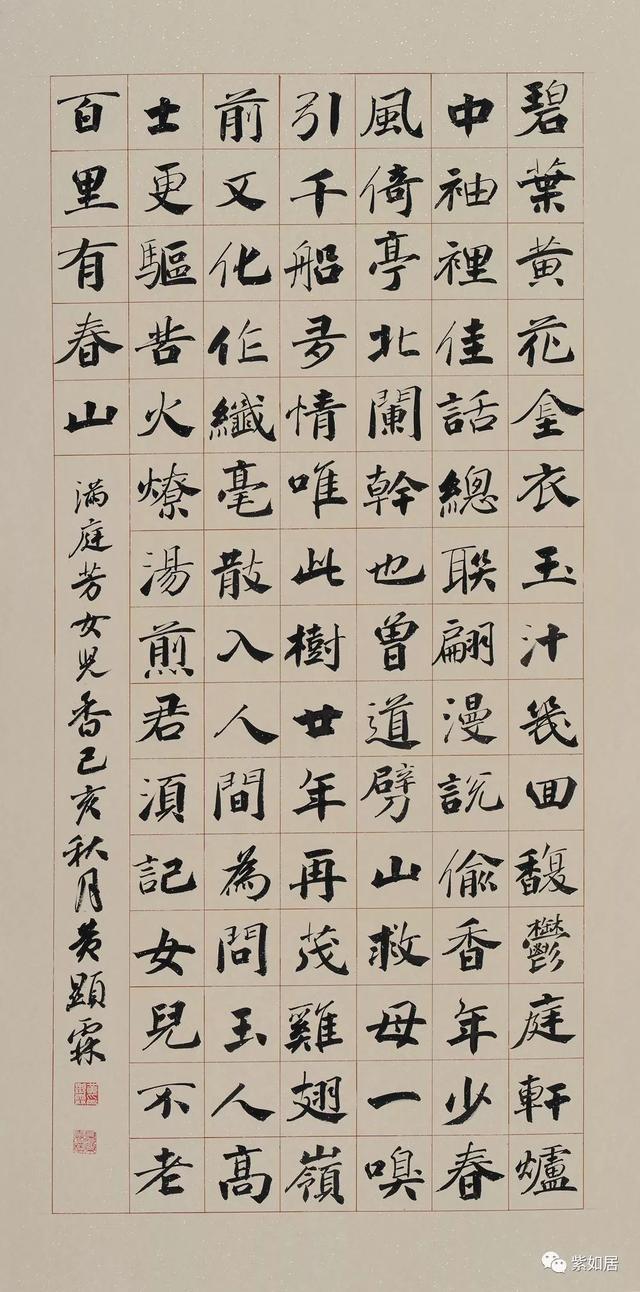 碧葉黄花金衣玉汁幾回馥鬱庭軒爐
中袖裡佳話總聯翩漫說偷香年少春
風倚亭北闌幹也曾道劈山救母一嗅
引千船多情唯此樹廿年再茂雞翅嶺
前又化作纖毫散入人間為問玉人高
士更驅苦火燎湯煎君須記女兒不老
百里有春山
满庭芳女兒香己亥秋月黄顯霖
紫如居